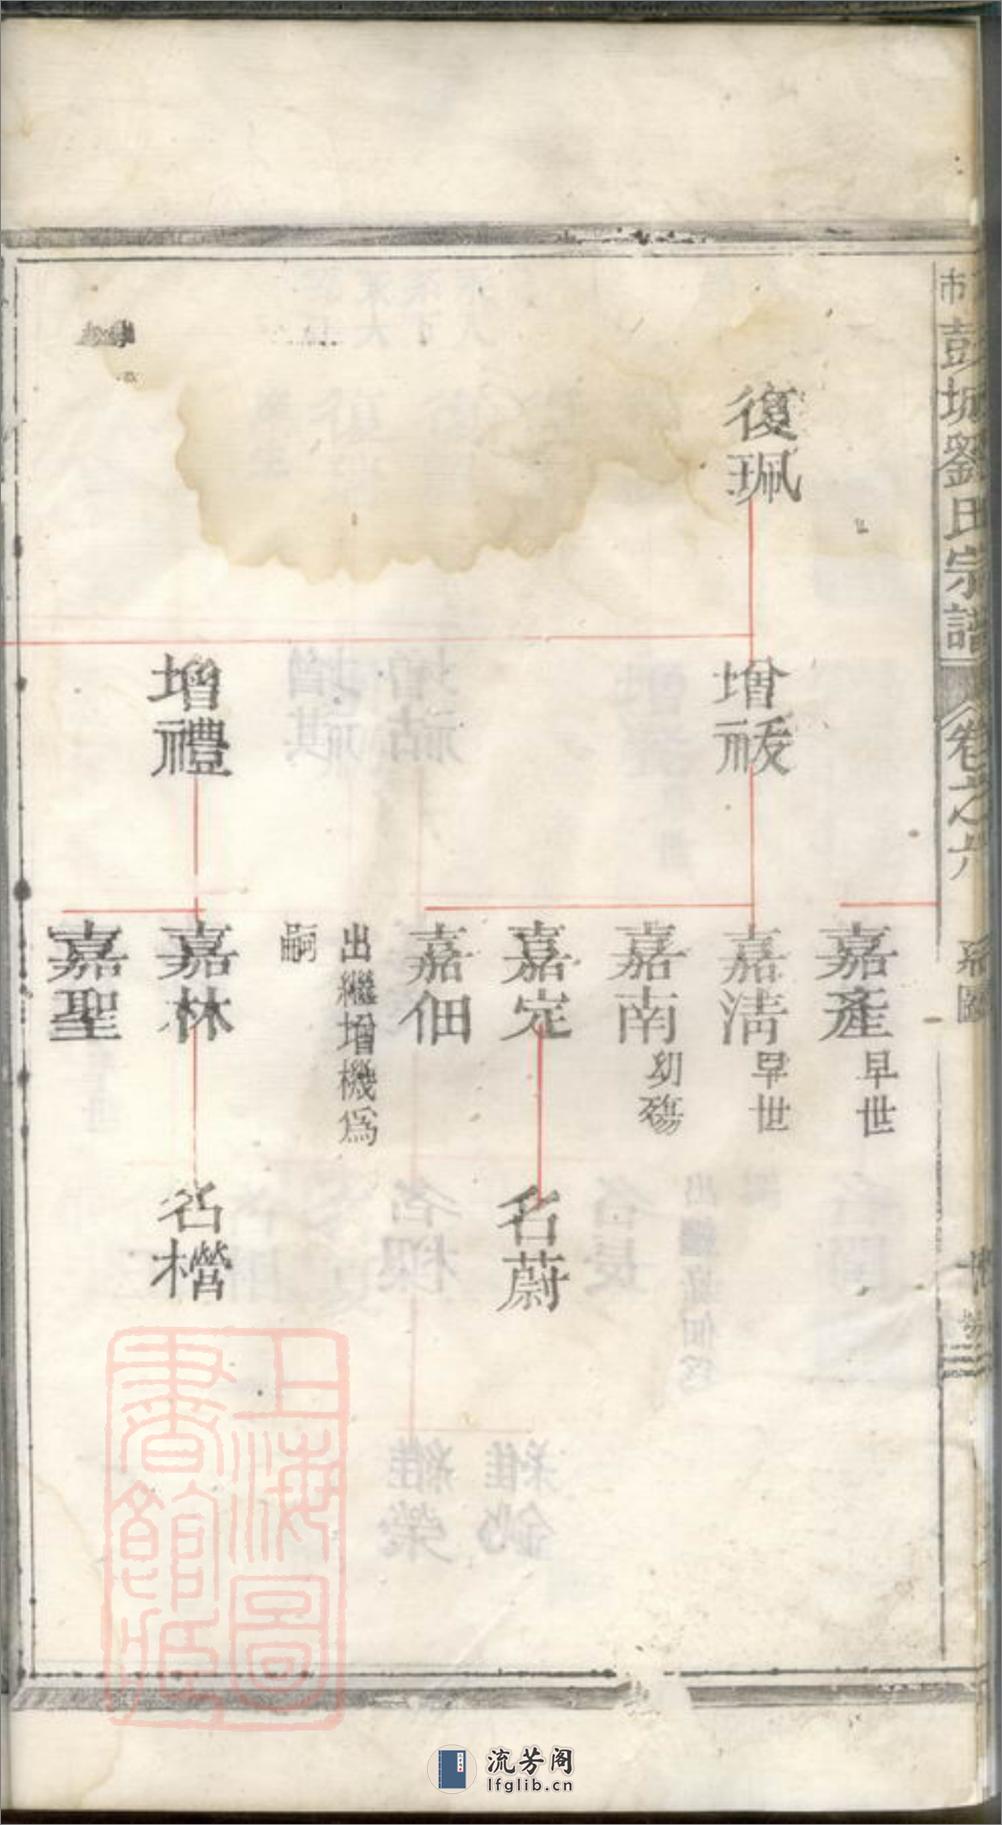 彭城劉氏宗譜
卷之六
系圖
復珮
增祓
增禮
嘉產
早世
嘉清
早世
嘉南
幼殤
嘉定
嘉佃
出繼增機爲
嗣
嘉林
嘉聖
名蔚
名橬
上海圖
書館藏
流芳阁
lfglib.cn